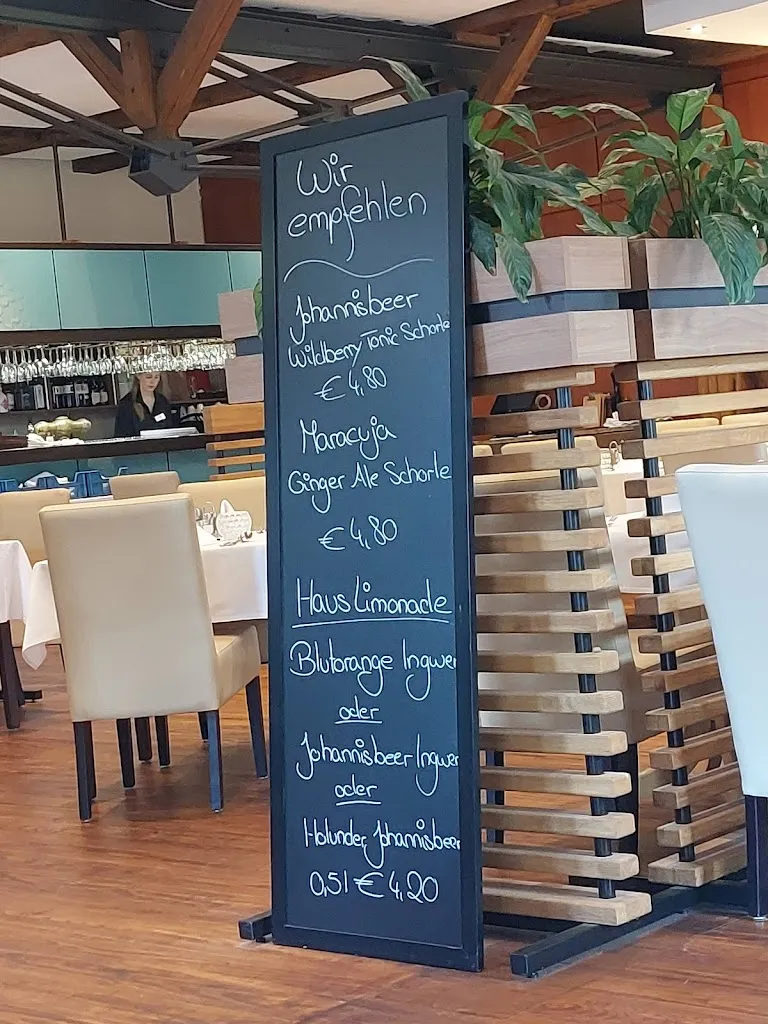 Wir
empfehlen
Johannisbeer
Wildberry Tonic Schorle
€ 4,80
Maracuja
Ginger Ale Schorle
€ 4,80
Haus Limonade
Blutorange Ingwer
oder
Johannisbeer Ingwer
oder
Holunder Johannisbeer
0,5l € 4,20